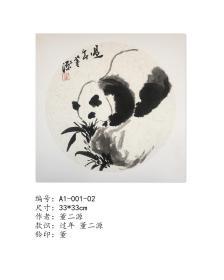 过年
董二源
编号：A1-001-02
尺寸：33*33cm
作者：董二源
款识：过年 董二源
钤印：董